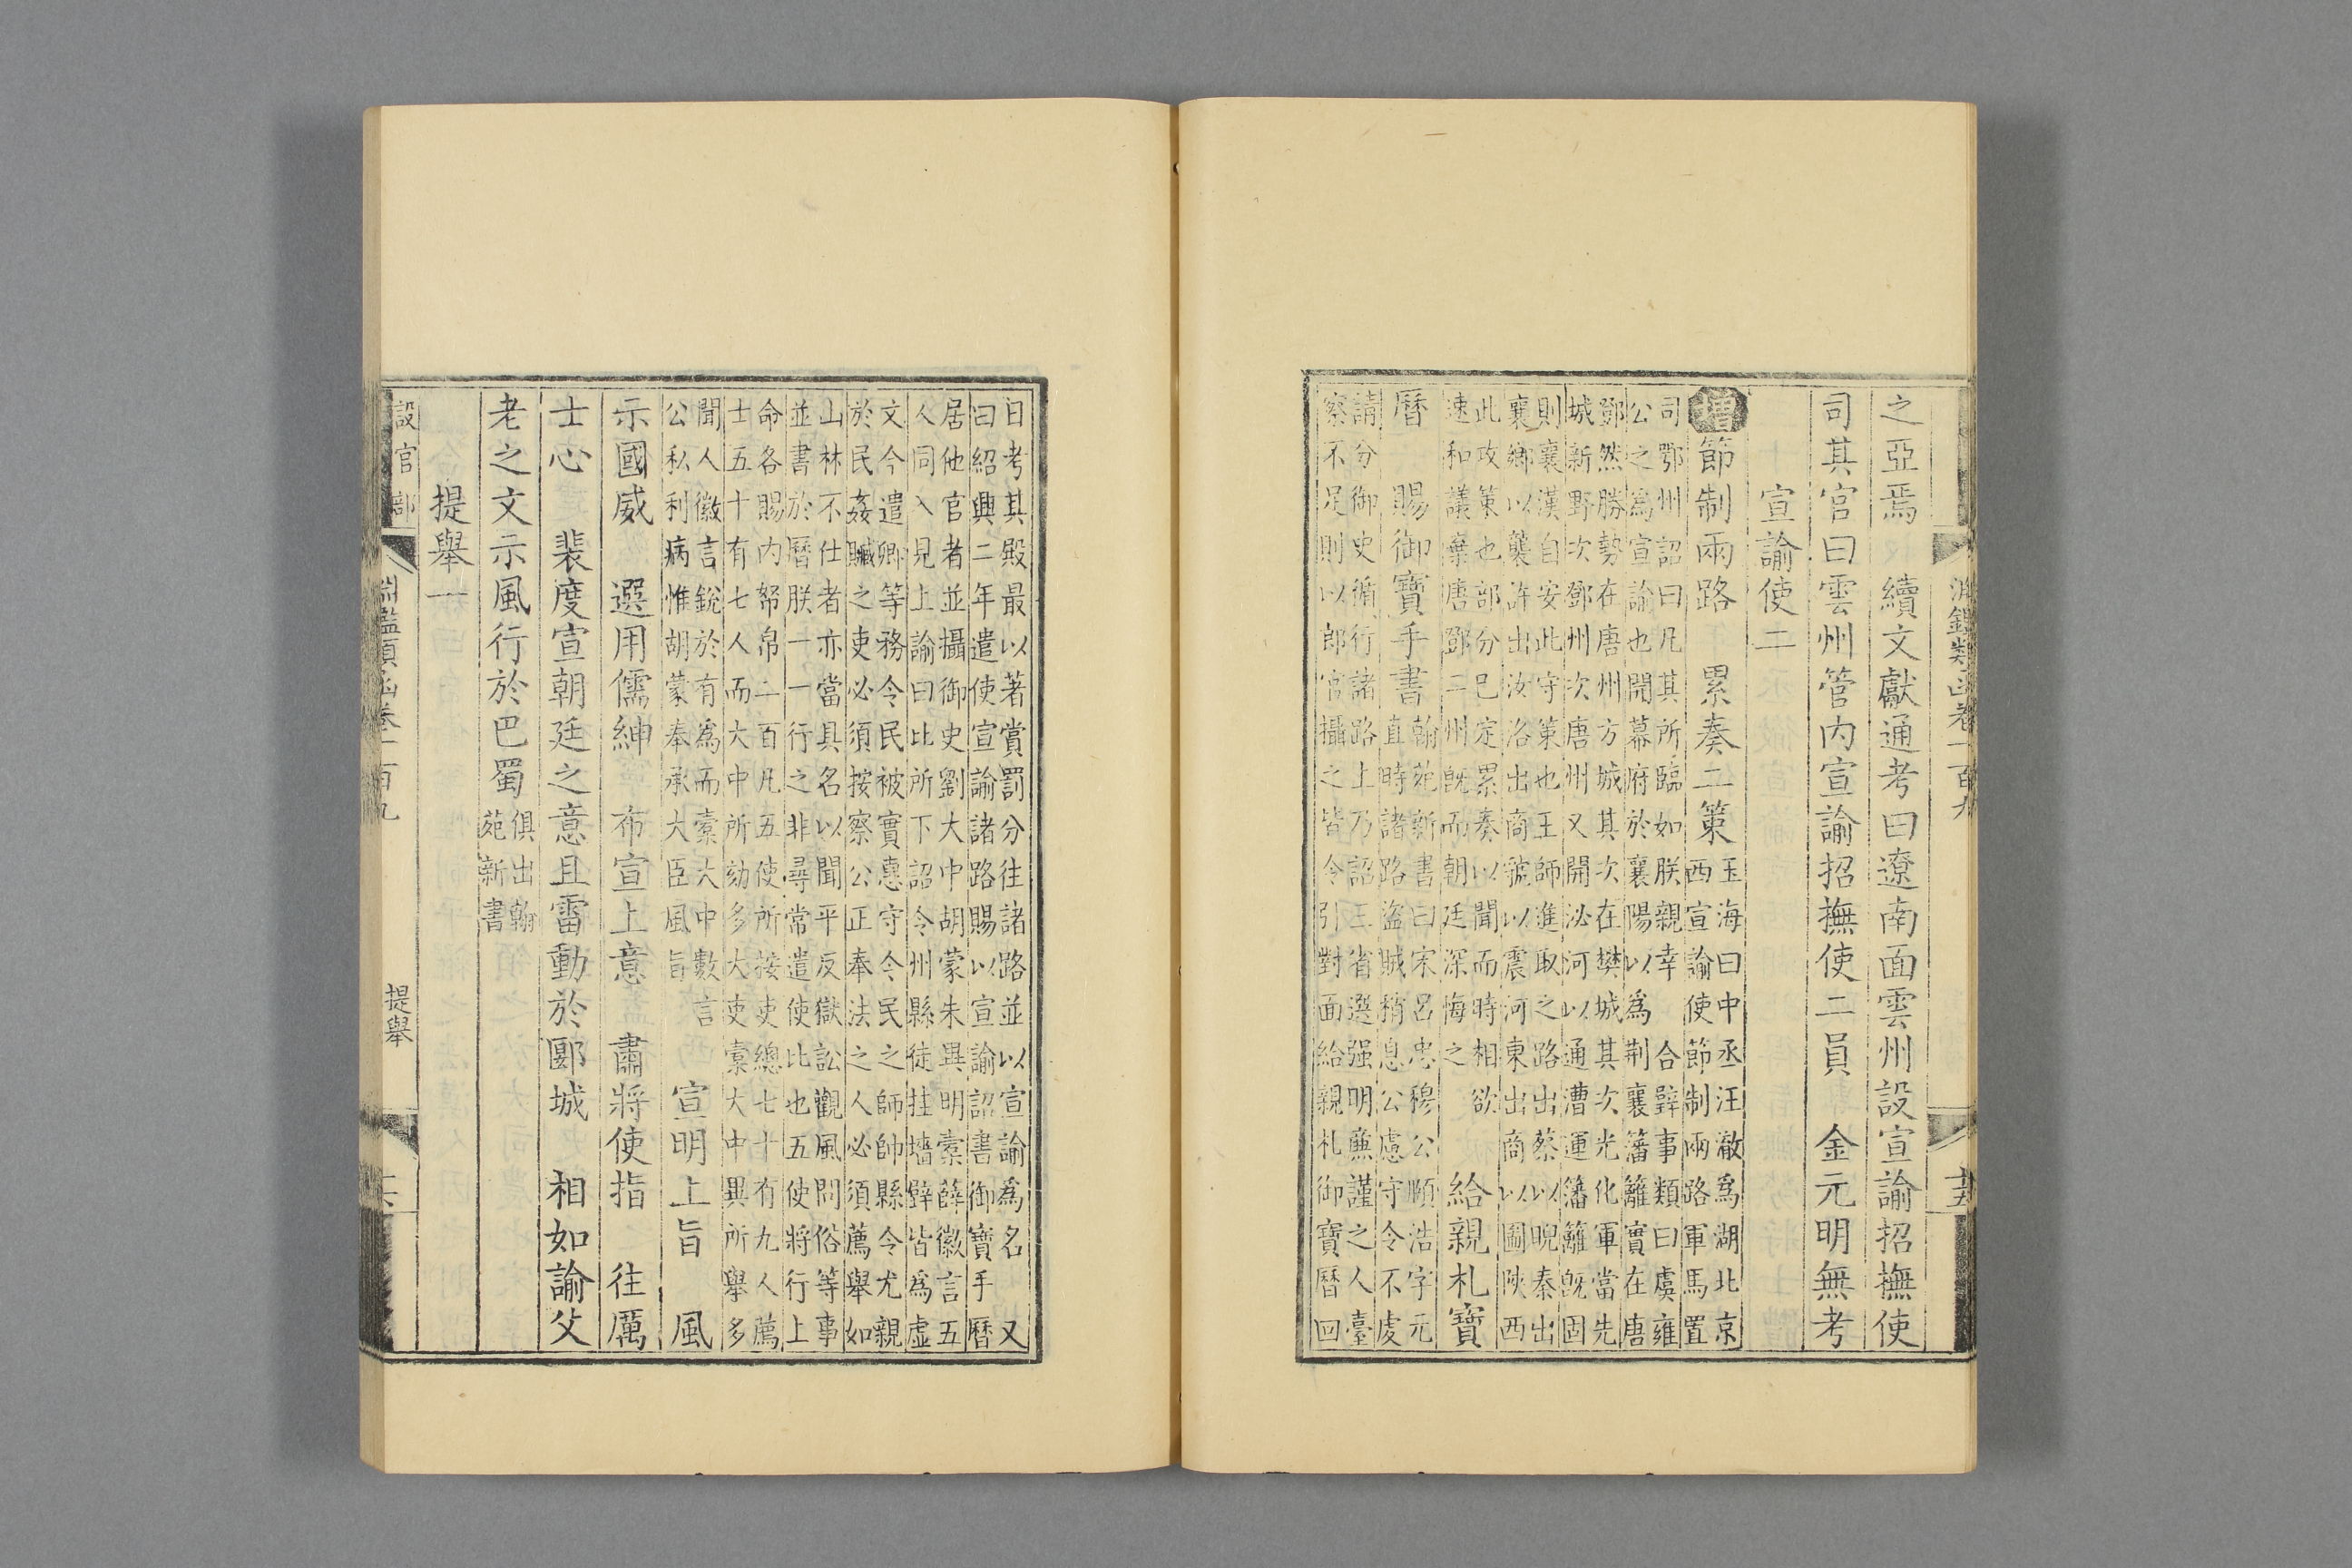 淵鑑類函卷一百九
十五
之亞焉　續文獻通考曰遼南面雲州設宣諭招撫使
司其官曰雲州管內宣諭招撫使二員　金元明無考
宣諭使二
增節制兩路　累奏二策
玉海曰中丞汪澈爲湖北京
西宣諭使節制兩路軍馬置
司鄂州詔曰凡其所臨如朕親幸　合辟事類曰虞雍
公之爲宣諭也開幕府於襄陽以爲荆襄藩籬實在唐
鄧然勝勢在唐州方城其次在樊城其次光化軍當先
城新野次鄧州次唐州又開泌河以通漕運籓籬旣固
則襄漢自安此守策也王師進取之路出蔡以睨秦出
襄鄉以襲許出汝洛出商虢以震河東出商以圖陝西
此攻策也部分已定累奏以聞而時相欲
速和議棄唐鄧二州旣而朝廷深悔之
給親札寶
曆　賜御寶手書
翰苑新書曰宋呂忠穆公頤浩字元
直時諸路盜賊稍息公慮守令不虔
請分御史循行諸路上乃詔三省選强明廉謹之人臺
察不足則以郎官攝之皆令引對面給親札御寶曆回
日考其殿最以著賞罰分往諸路並以宣諭爲名　又
曰紹興二年遣使宣諭諸路賜以宣諭詔書御寶手曆
居他官者並攝御史劉大中胡蒙朱異明橐薛徽言五
人同入見上諭曰比所下詔令州縣徒挂墻壁皆爲虛
文今遣卿等務令民被實惠守令民之師帥縣令尤親
於民姦贓之吏必須按察公正奉法之人必須薦舉如
山林不仕者亦當具名以聞平反獄訟觀風問俗等事
並書於曆朕一一行之非尋常遣使比也五使將行上
命各賜內帑帛二百凡五使所按吏總七十有九人薦
士五十有七人而大中所劾多大吏橐大中異所舉多
聞人徽言銳於有爲而橐大中數言
公私利病惟胡蒙奉承大臣風旨
宣明上旨　風
示國威　選用儒紳　布宣上意　肅將使指　往厲
士心　裴度宣朝廷之意且雷動於郾城　相如諭父
老之文示風行於巴蜀
俱出翰
苑新書
提舉一
設官部
淵鑑類函卷一百九
提舉
十六